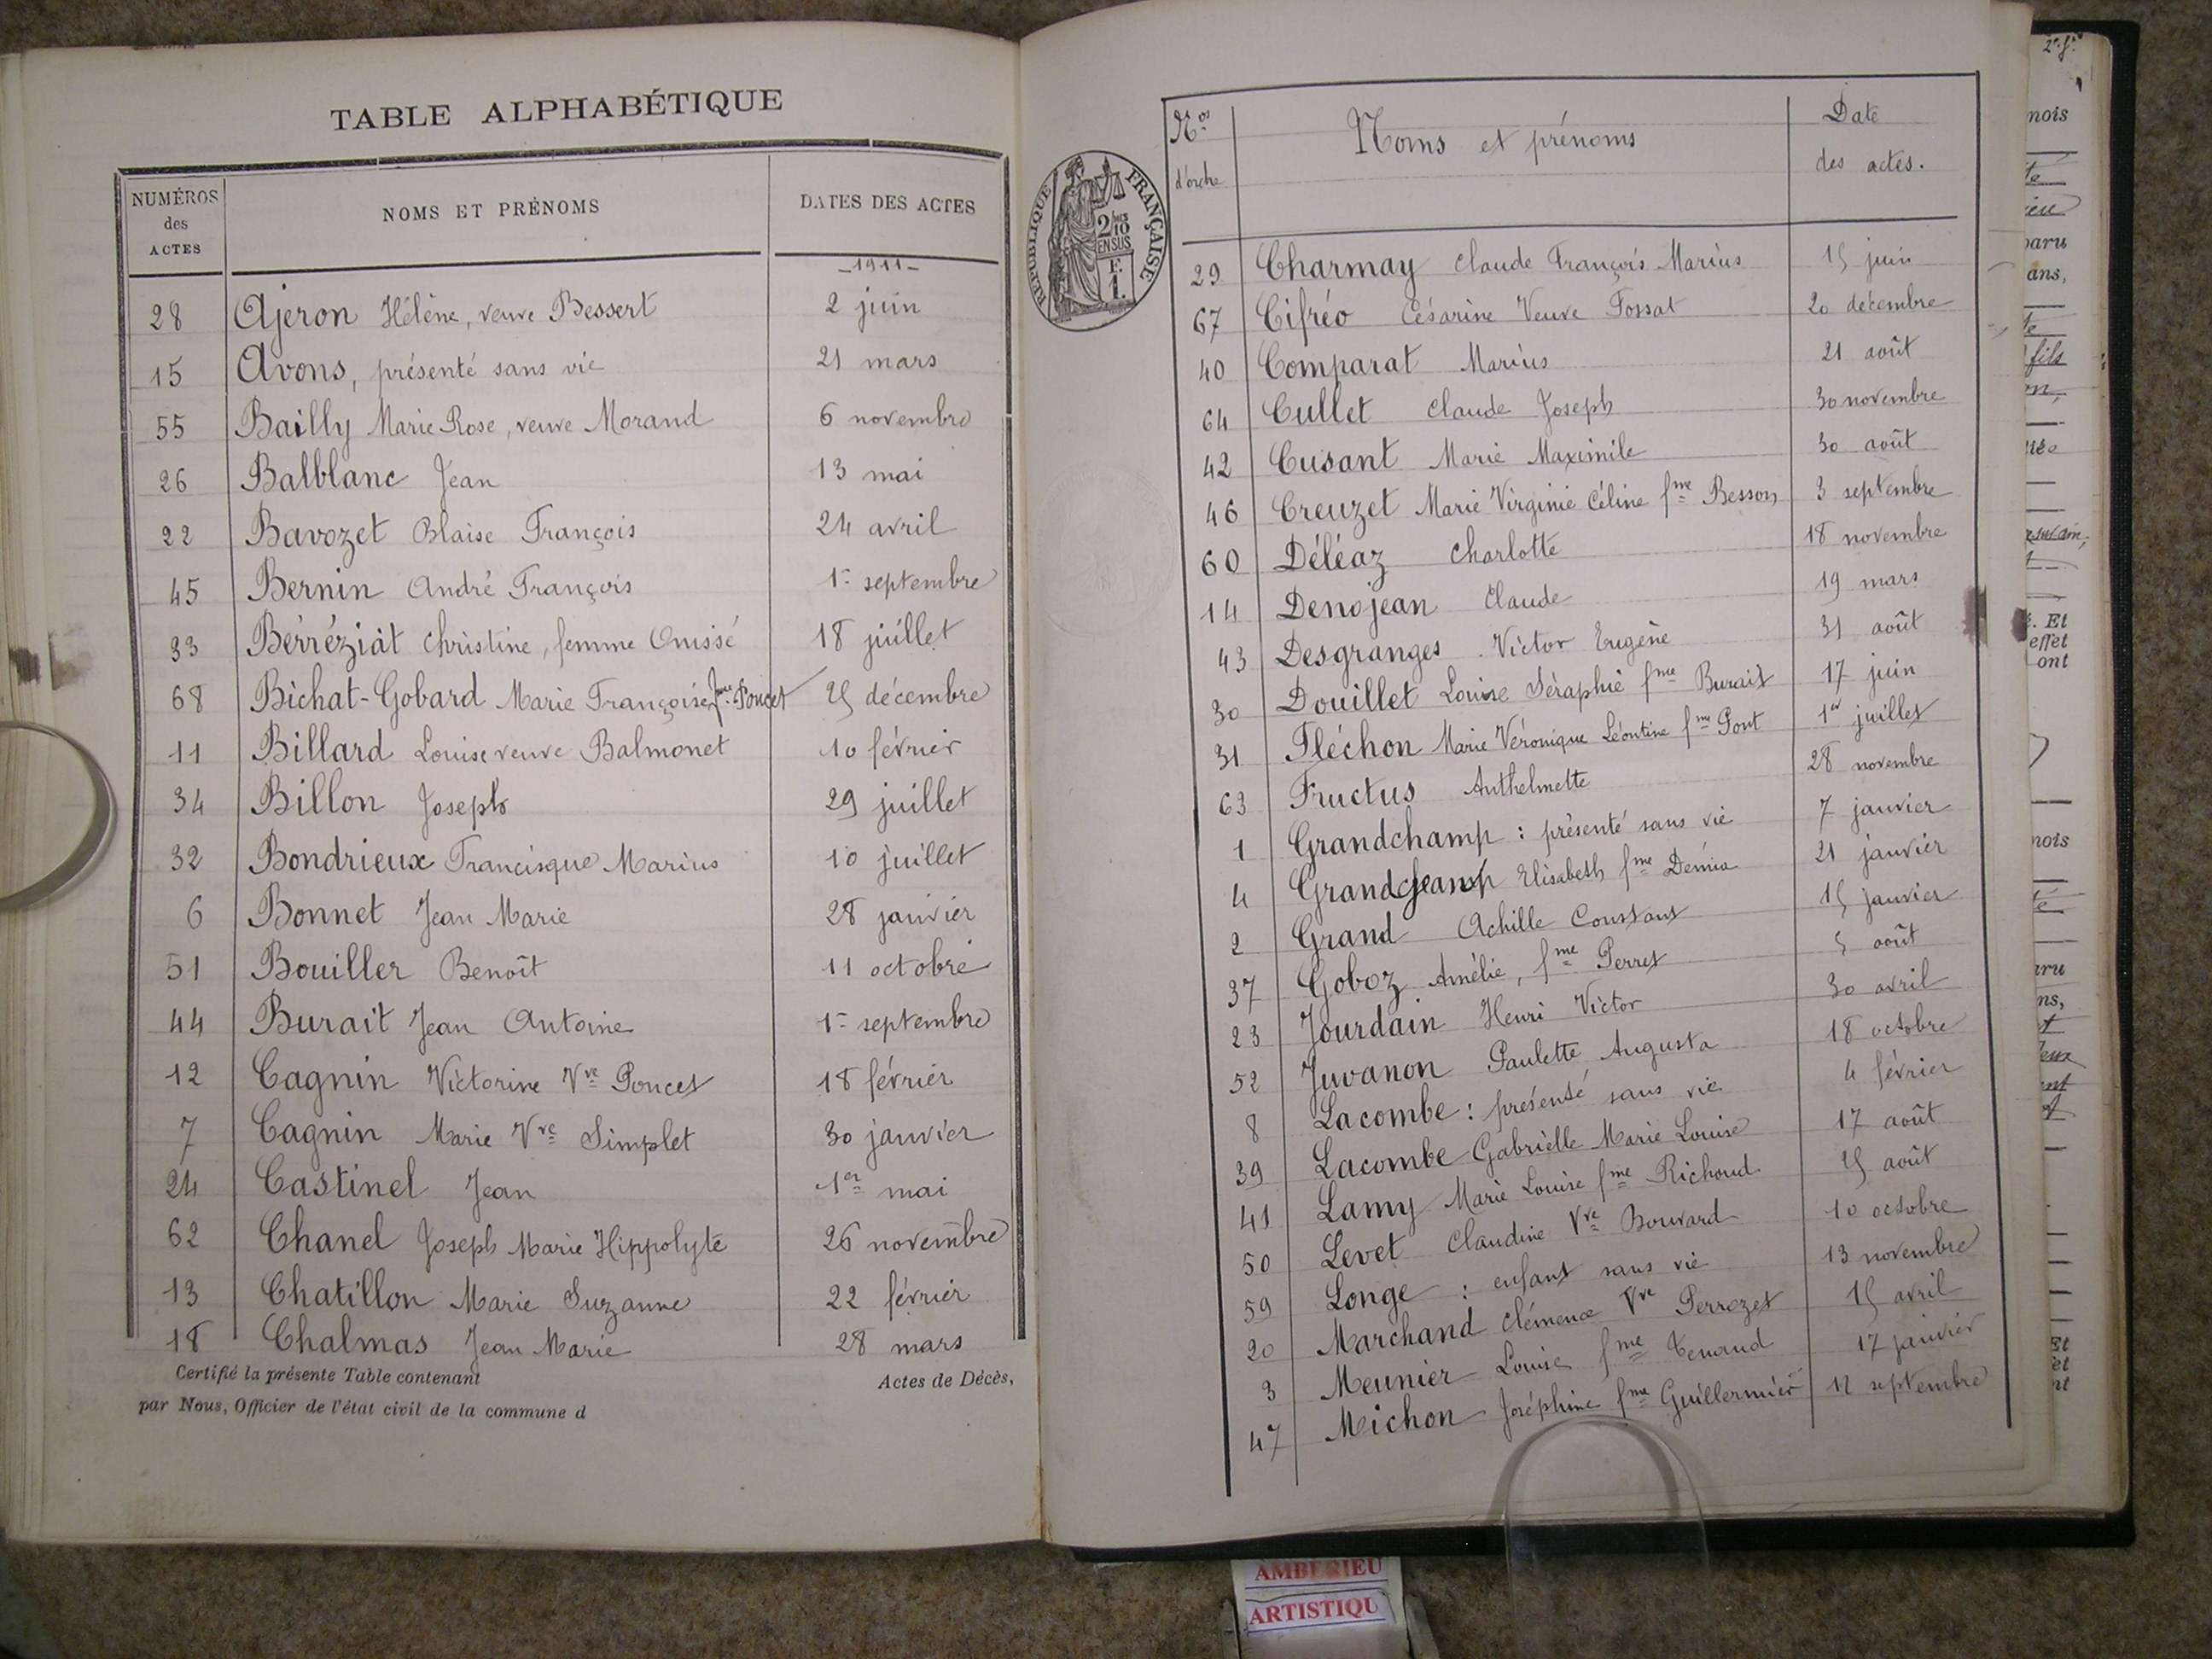 TABLE ALPHABÉTIQUE
NUMÉROS des ACTES NOMS ET PRÉNOMS DATES DES ACTES
1911
28 Ajeron Hélène, veuve Bessert 2 juin
15 Avons, présenté sans vie 21 mars
55 Bailly Marie Rose, veuve Morand 6 novembre
26 Balblanc Jean 13 mai
22 Bavozet Blaise François 24 avril
45 Bernin André François 1er septembre
33 Berréziat Christine, femme Cuissé 18 juillet
68 Bichat-Gobard Marie Françoise fme Poncet 25 décembre
11 Billard Louise veuve Balmonet 10 février
34 Billon Joseph 29 juillet
32 Bondrieux Francisque Marius 10 juillet
6 Bonnet Jean Marie 28 janvier
51 Bouiller Benoît 11 octobre
44 Burait Jean Antoine 1er septembre
12 Cagnin Victorine Vve Poncet 18 février
7 Cagnin Marie Vve Simplet 30 janvier
24 Castinel Jean 1er mai
62 Chanel Joseph Marie Hippolyte 26 novembre
13 Chatillon Marie Suzanne 22 février
18 Chalmas Jean Marie 28 mars
Certifié la présente Table contenant Actes de Décès,
par Nous, Officier de l'état civil de la commune d
RÉPUBLIQUE FRANÇAISE
2/10 EN SUS
F. 1.
Nos d'ordre Noms et prénoms Date des actes.
29 Charmay Claude François Marius 15 juin
67 Cifréo Césarine Veuve Fossat 20 décembre
40 Comparat Marius 21 août
64 Cullet Claude Joseph 30 novembre
42 Cusant Marie Maximile 30 août
46 Creuzet Marie Virginie Céline fme Besson 3 septembre
60 Déléaz Charlotte 18 novembre
14 Denojean Claude 19 mars
43 Desgranges Victor Eugène 31 août
30 Douillet Louise Séraphie fme Burait 17 juin
31 Fléchon Marie Véronique Léontine fme Pont 1er juillet
63 Fructus Anthelmette 28 novembre
1 Grandchamp : présenté sans vie 7 janvier
4 Grandjean Elisabeth fme Demia 21 janvier
2 Grand Achille Constant 15 janvier
37 Goboz Amélie, fme Perret 5 août
23 Jourdain Henri Victor 30 avril
52 Juvanon Paulette Augusta 18 octobre
8 Lacombe : présenté sans vie 4 février
39 Lacombe Gabrielle Marie Louise 17 août
41 Lamy Marie Louise fme Richoud 25 août
50 Levet Claudine Vve Bouvard 10 octobre
59 Longe : enfant sans vie 13 novembre
20 Marchand Clémence Vve Perrozet 15 avril
3 Meunier Louise fme Tenaud 17 janvier
47 Michon Joséphine fme Guillermier 12 septembre
AMBERIEU
ARTISTIQU